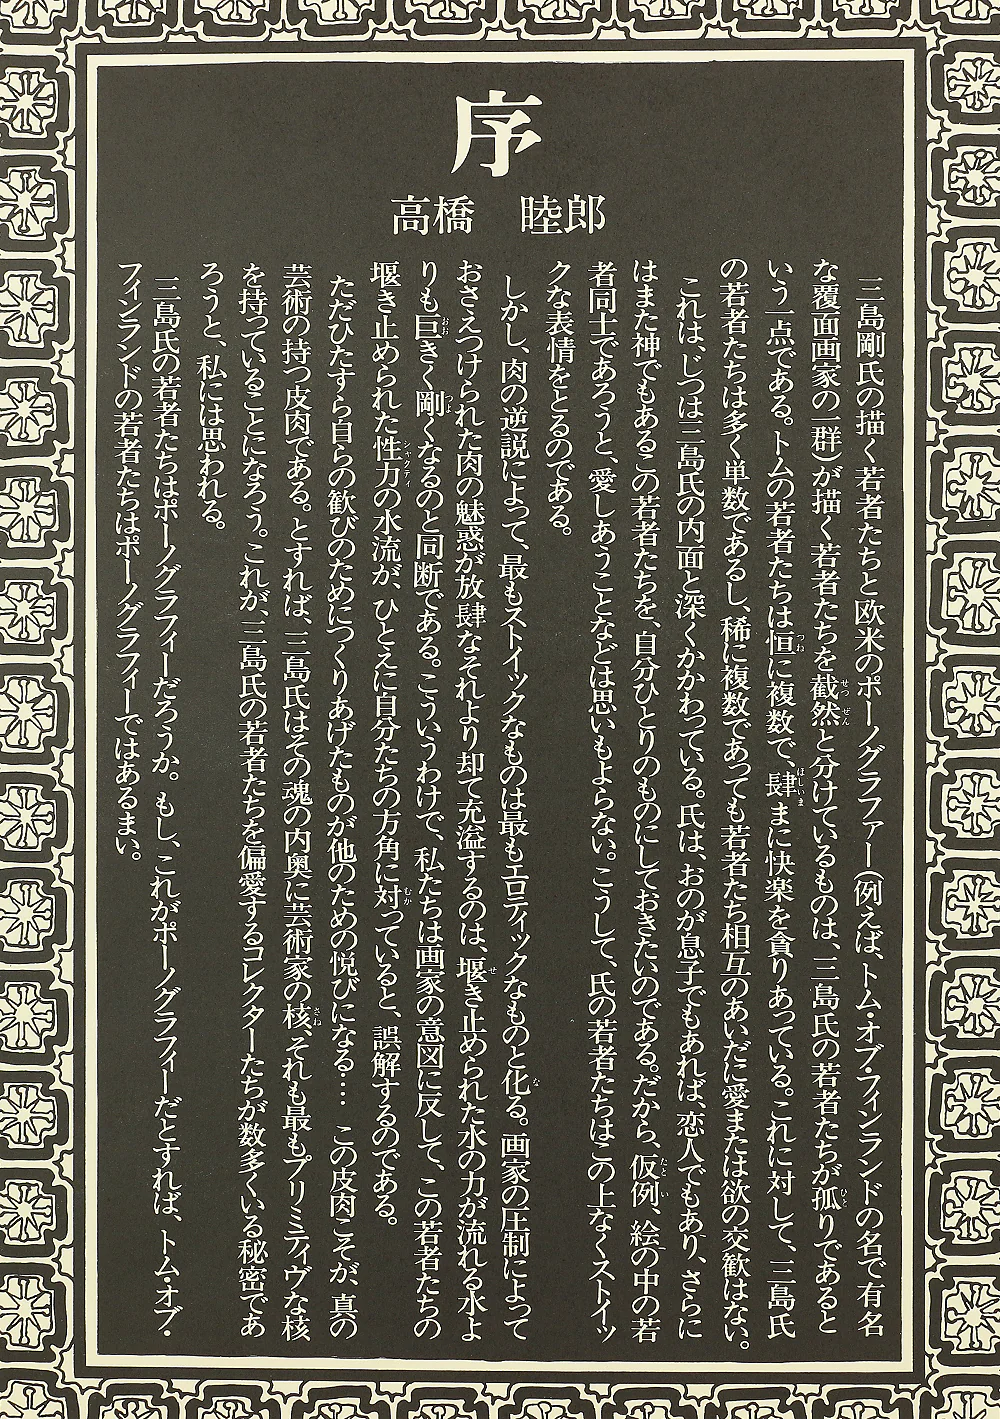 序
高橋　睦郎
三島剛氏の描く若者たちと欧米のポーノグラファー（例えば、トム・オブ・フィンランドの名で有名
な覆面画家の一群）が描く若者たちを截然と分けているものは、三島氏の若者たちが孤りであると
いう一点である。トムの若者たちは恒に複数で、肆まに快楽を貪りあっている。これに対して、三島氏
の若者たちは多く単数であるし、稀に複数であっても若者たち相互のあいだに愛または欲の交歓はない。
これは、じつは三島氏の内面と深くかかわっている。氏は、おのが息子でもあれば、恋人でもあり、さらに
はまた神でもあるこの若者たちを、自分ひとりのものにしておきたいのである。だから、仮例、絵の中の若
者同士であろうと、愛しあうことなどは思いもよらない。こうして、氏の若者たちはこの上なくストイッ
クな表情をとるのである。
しかし、肉の逆説によって、最もストイックなものは最もエロティックなものと化る。画家の圧制によって
おさえつけられた肉の魅惑が放肆なそれより却て充溢するのは、堰き止められた水の力が流れる水よ
りも巨きく剛くなるのと同断である。こういうわけで、私たちは画家の意図に反して、この若者たちの
堰き止められた性力の水流が、ひとえに自分たちの方角に対っていると、誤解するのである。
ただひたすら自らの歓びのためにつくりあげたものが他のための悦びになる…　この皮肉こそが、真の
芸術の持つ皮肉である。とすれば、三島氏はその魂の内奥に芸術家の核、それも最もプリミティヴな核
を持っていることになろう。これが、三島氏の若者たちを偏愛するコレクターたちが数多くいる秘密であ
ろうと、私には思われる。
三島氏の若者たちはポーノグラフィーだろうか。もし、これがポーノグラフィーだとすれば、トム・オブ・
フィンランドの若者たちはポーノグラフィーではあるまい。